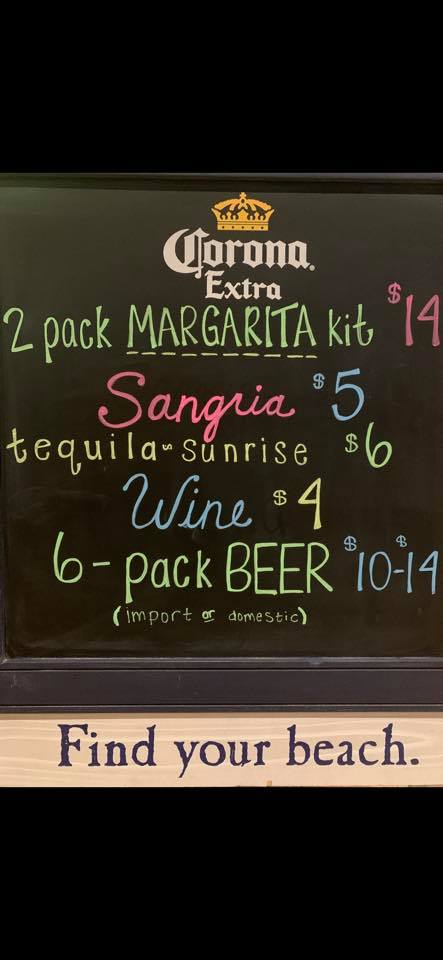 Corona.
Extra
2 pack MARGARITA kit $14
Sangria $5
tequila~sunrise $6
Wine $4
6-pack BEER $10-$14
(import or domestic)
Find your beach.